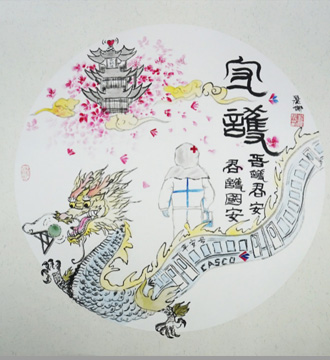 守護
吾護君安
君護國安
CASCO